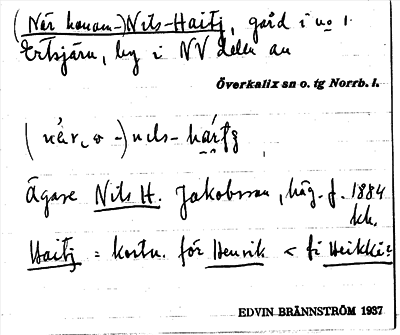 (När konom-)Nils-Haitj, gård i no 1
Ertsjärn, by i NV delen av
Överkalix sn o. tg Norrb. l.
nils-
Ägare Nils H. Jakobsson, häg. f. 1884
kh.
Haitj = kortn. för Henrik < fi Heikki?
EDVIN BRÄNNSTRÖM 1937